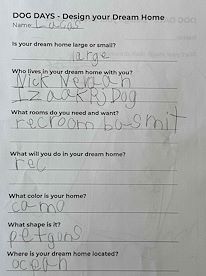 DOG DAYS - Design your Dream Home
Name: Lucas
Is your dream home large or small?
large
Who lives in your dream home with you?
Nick
IzaakBJ Dog
What rooms do you need and want?
recroom basmit
What will you do in your dream home?
rec
What color is your home?
camo
What shape is it?
petgons
Where is your dream home located?
ocean